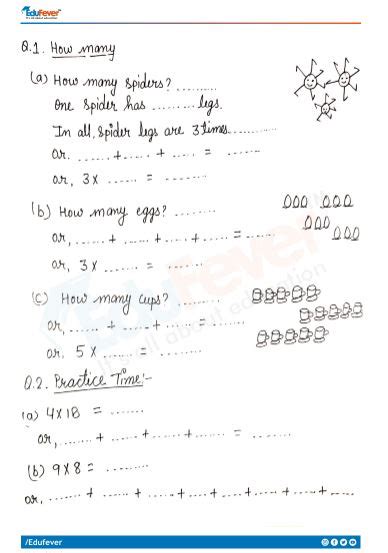 EduFever
It's all about education
Q.1. How many
(a) How many spiders? ..........
One spider has .......... legs.
In all, spider legs are 3 times ............
or. ....... + ...... + ...... = .......
or, 3 x ....... = .........
(b) How many eggs? .........
or, ...... + ....... + ...... + ...... = .......
or, 3 x ....... = .........
(c) How many cups? .........
or, ....... + ...... + ..... = .......
or. 5 x ....... = .........
Q.2. Practice Time:-
(a) 4x18 = .......
or, ....... + ...... + ....... + ...... = ........
(b) 9x8 = .........
or, ....... + ...... + ...... + ..... + ..... + ...... + ..... + .....
/Edufever